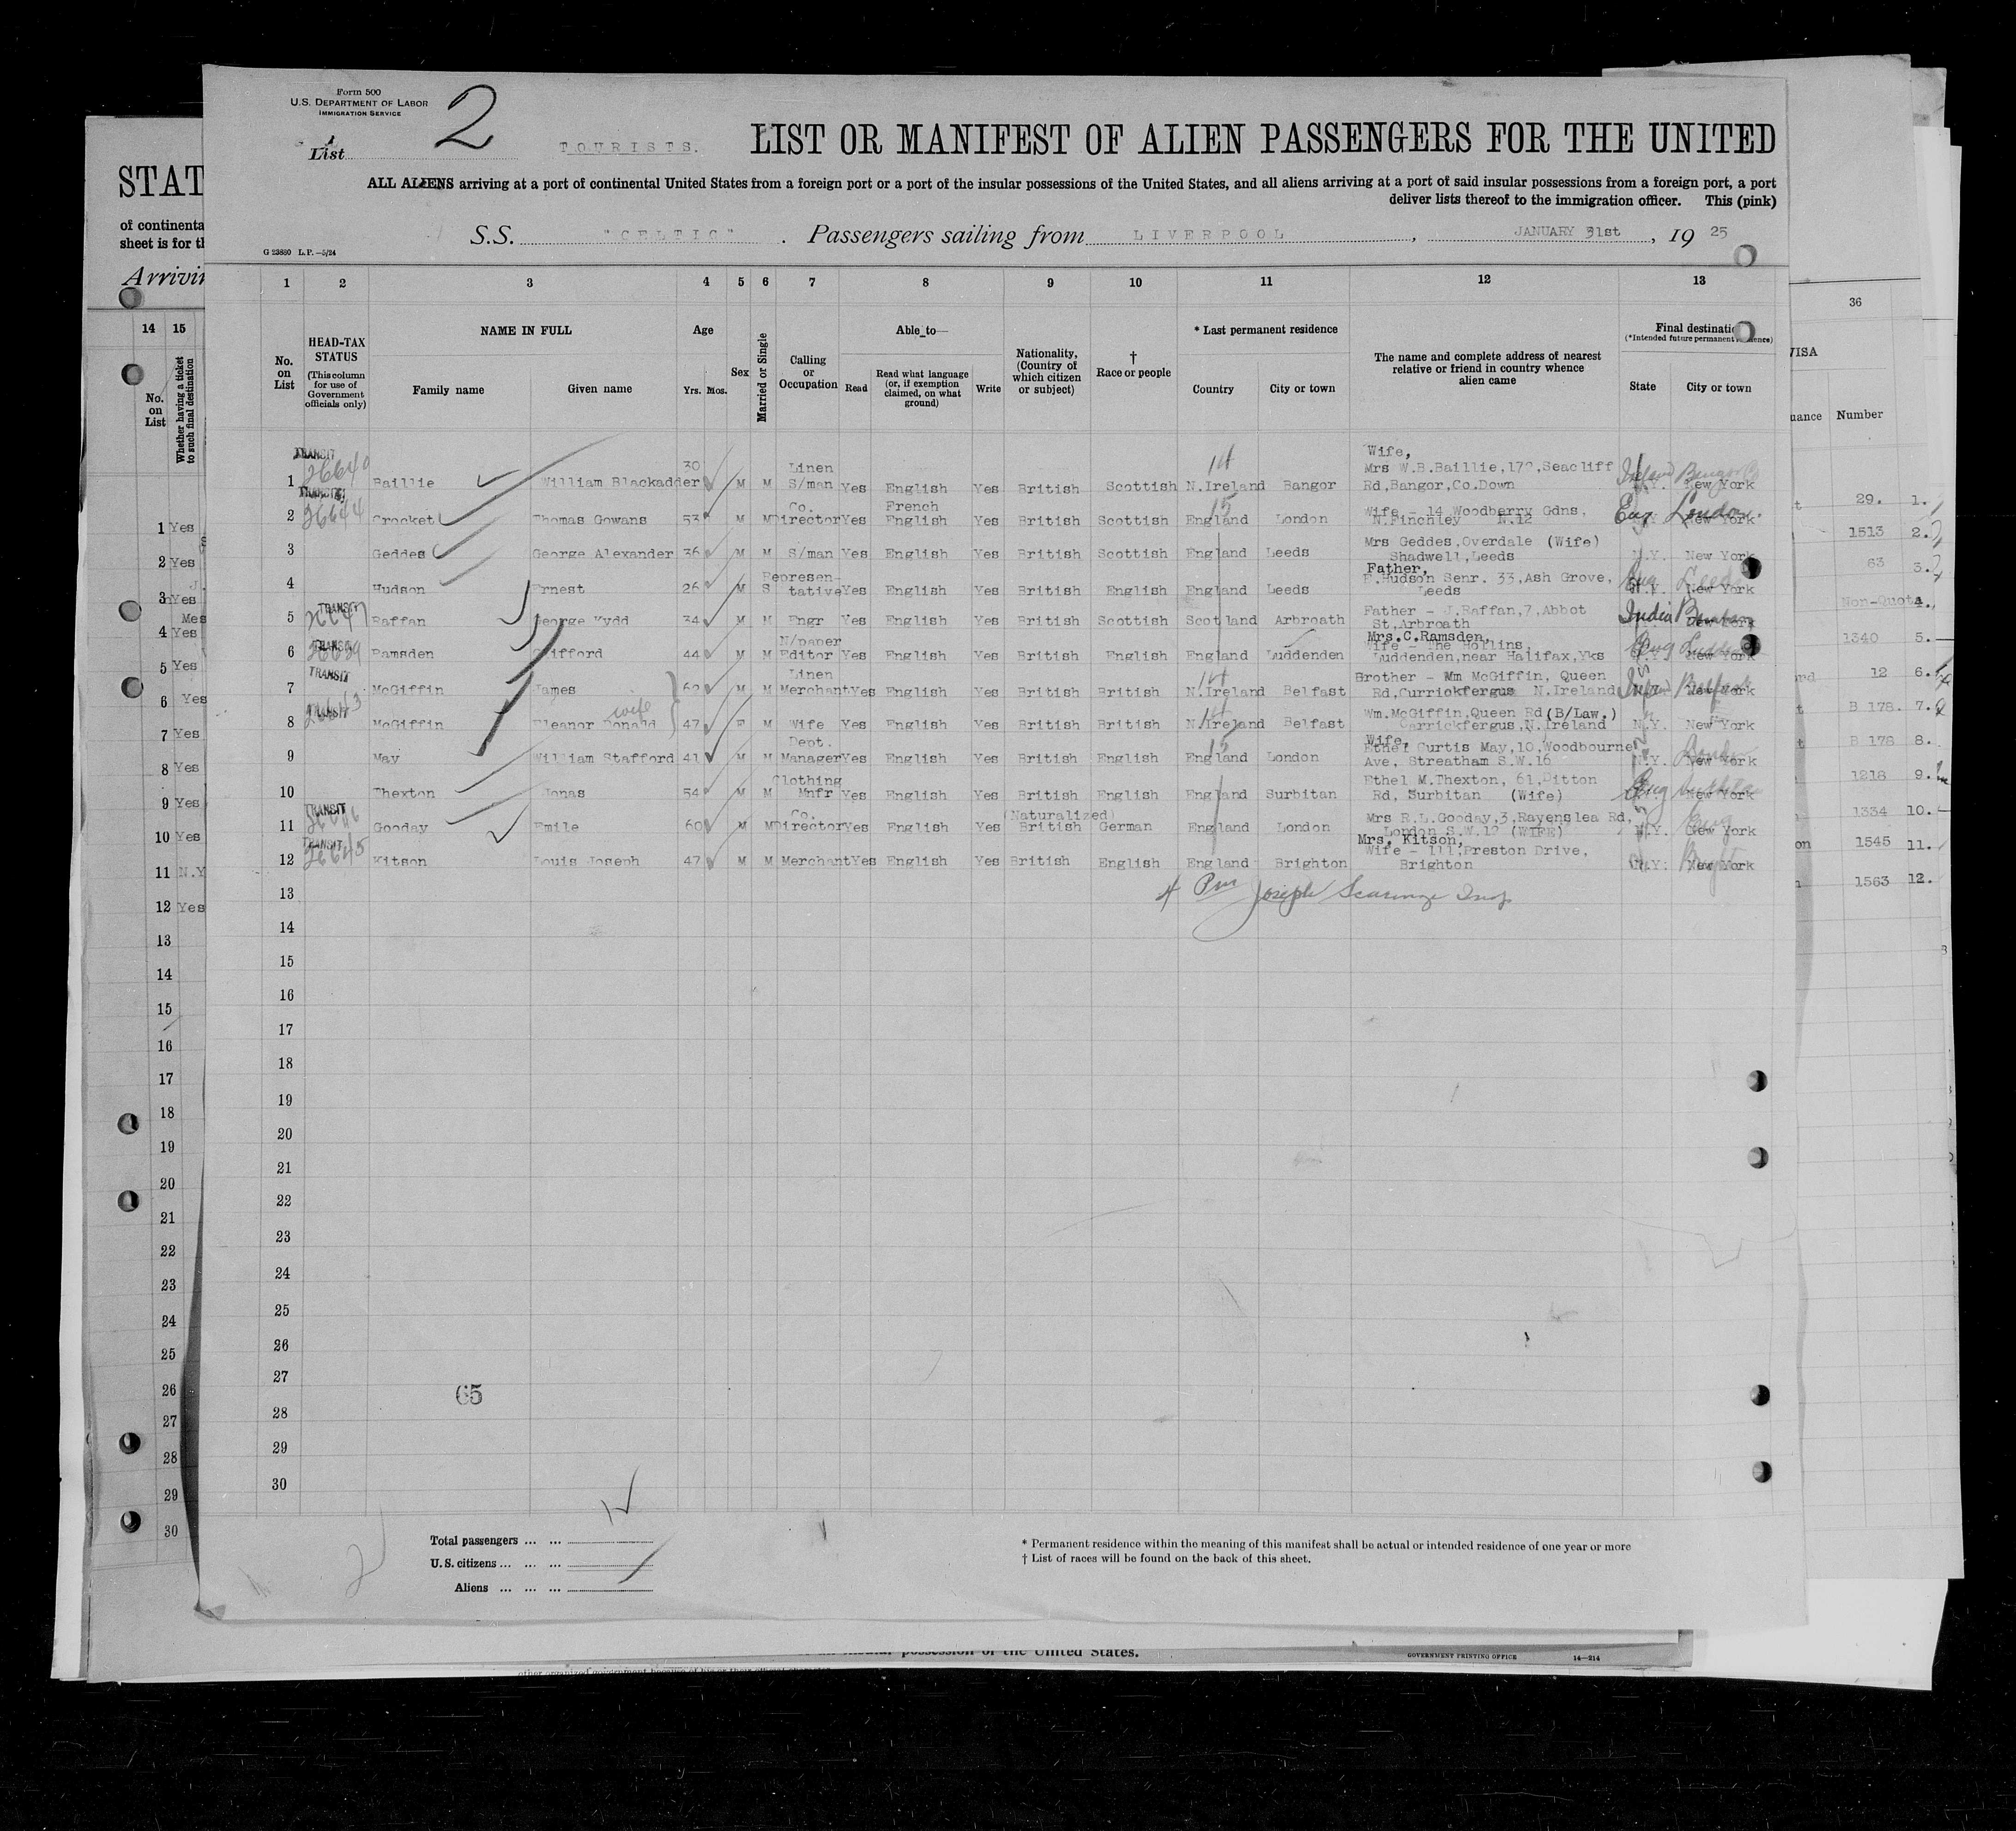 Form 500
U.S. DEPARTMENT OF LABOR
IMMIGRATION SERVICE
List 2
TOURISTS.
LIST OR MANIFEST OF ALIEN PASSENGERS FOR THE UNITED
ALL ALIENS arriving at a port of continental United States from a foreign port or a port of the insular possessions of the United States, and all aliens arriving at a port of said insular possessions from a foreign port, a port
deliver lists thereof to the immigration officer. This (pink)
S.S. "CELTIC" . Passengers sailing from LIVERPOOL , JANUARY 31st , 19 25
G 23880 L.P.—5/24
STAT
of continenta
sheet is for th
Arrivin
1 2 3 4 5 6 7 8 9 10 11 12 13
No. on List
HEAD-TAX STATUS
(This column for use of Government officials only)
NAME IN FULL
Family name Given name
Age
Yrs. Mos.
Sex
Married or Single
Calling or Occupation
Able to—
Read
Read what language (or, if exemption claimed, on what ground)
Write
Nationality, (Country of which citizen or subject)
† Race or people
* Last permanent residence
Country City or town
The name and complete address of nearest relative or friend in country whence alien came
Final destination
(*Intended future permanent residence)
State City or town
TRANSIT 26640
1 Baillie William Blackadder 30 M M Linen S/man Yes English Yes British Scottish N.Ireland Bangor Wife, Mrs W.B.Baillie,172,Seacliff Rd,Bangor,Co.Down N.Y. New York
14
Ireland Bangor
TRANSIT 26644
2 Crocket Thomas Gowans 53 M M Co. Director Yes French English Yes British Scottish England London Wife - 14 Woodberry Gdns, N.Finchley N.12 New York
15
Eng London.
3 Geddes George Alexander 36 M M S/man Yes English Yes British Scottish England Leeds Mrs Geddes,Overdale (Wife) Shadwell,Leeds N.Y. New York
4 Hudson Ernest 26 M S Representative Yes English Yes British English England Leeds Father, E.Hudson Senr. 33,Ash Grove, Leeds N.Y. New York
Eng Leeds
TRANSIT
5 Raffan George Kydd 34 M M Engr Yes English Yes British Scottish Scotland Arbroath Father - J.Raffan,7,Abbot St,Arbroath New York
India
TRANSIT
6 Ramsden Clifford 44 M M N/paper Editor Yes English Yes British English England Luddenden Mrs.C.Ramsden, Wife - The Hollins, Luddenden,near Halifax,Yks N.Y. New York
Eng
TRANSIT
7 McGiffin James 62 M M Linen Merchant Yes English Yes British British N.Ireland Belfast Brother - Wm McGiffin, Queen Rd,Currickfergus N.Ireland New York
14
Belfast
TRANSIT
8 McGiffin Eleanor Donald wife 47 F M Wife Yes English Yes British British N.Ireland Belfast Wm.McGiffin,Queen Rd(B/Law.) Carrickfergus,N.Ireland N.Y. New York
14
9 May William Stafford 41 M M Dept. Manager Yes English Yes British English England London Wife, Ethel Curtis May,10,Woodbourne Ave, Streatham S.W.16 N.Y. New York
15
London
10 Thexton Jonas 54 M M Clothing Mnfr Yes English Yes British English England Surbiton Ethel M.Thexton, 61,Ditton Rd, Surbitan (Wife) New York
Eng
TRANSIT 26646
11 Gooday Emile 60 M M Co. Director Yes English Yes (Naturalized) British German England London Mrs R.L.Gooday,3,Rayenslea Rd, London S.W.12 (WIFE) N.Y. New York
Eng
TRANSIT 26645
12 Kitson Louis Joseph 47 M M Merchant Yes English Yes British English England Brighton Mrs. Kitson, Wife - 111,Preston Drive, Brighton N.Y. New York
13
Joseph
14
15
16
17
18
19
20
21
22
23
24
25
26
27
65
28
29
30
12
Total passengers ... ...
U.S. citizens ... ... ...
Aliens ... ... ...
* Permanent residence within the meaning of this manifest shall be actual or intended residence of one year or more
† List of races will be found on the back of this sheet.
14 15
No. on List
Whether having a ticket to such final destination
1 Yes
2 Yes
3 Yes
4 Yes
5 Yes
6 Yes
7 Yes
8 Yes
9 Yes
10 Yes
11 N.Y
12 Yes
13
14
15
16
17
18
19
20
21
22
23
24
25
26
27
28
29
30
36
VISA
uance Number
29. 1.
1513 2.
63 3.
Non-Quota 4.
1340 5.
12 6.
B 178. 7.
B 178 8.
1218 9.
1334 10.
1545 11.
1563 12.
possession of the United States.
GOVERNMENT PRINTING OFFICE 14—214